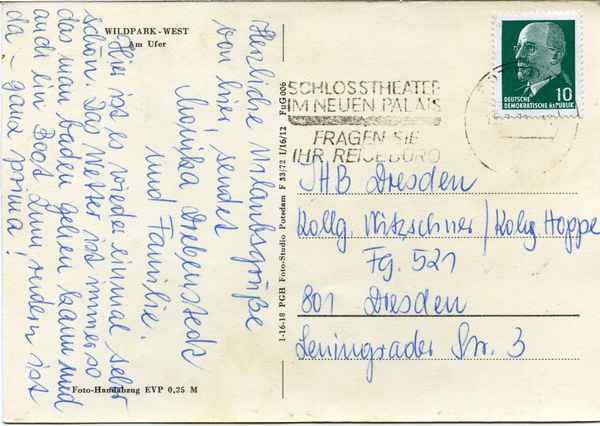 WILDPARK-WEST
Am Ufer
Herzliche Urlaubsgrüße
von hier, sendet
Monika
und Familie.
Hier ist es wieder einmal sehr
schön. Das Wetter ist immer so
das man baden gehen kann und
auch ein Boot zum rudern ist
da – ganz prima!
Foto-Handabzug EVP 0,25 M
1-16-18 PGH Foto-Studio Potsdam F 33/72 I/16/12 FuG 006
SCHLOSSTHEATER
IM NEUEN PALAIS
FRAGEN SIE
IHR REISEBÜRO
10
DEUTSCHE
DEMOKRATISCHE REPUBLIK
IHB Dresden
Kollg. Witzschner / Kollg Hoppe
Fg. 521
801 Dresden
Leningrader Str. 3